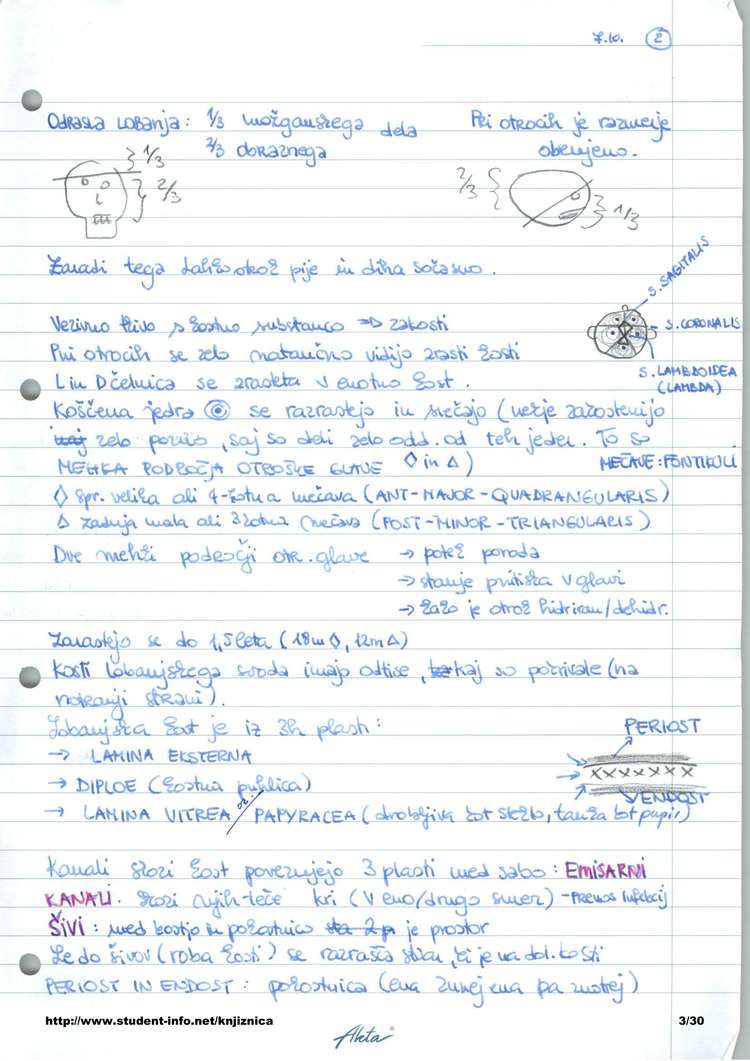 7.10. 2
Odrasla lobanja: 1/3 možganskega dela
2/3 obraznega
Pri otrocih je razmerje
obrnjeno.
1/3
2/3
2/3
1/3
Zaradi tega lahko otrok pije in diha sočasno.
S. SAGITALIS
Vezivno tkivo s kostno substanco => zakosti
S. CORONALIS
Pri otrocih se zelo natančno vidijo zrasti kosti
S. LAMBDOIDEA
(LAMBDA)
L in D čelnica se zrasteta v enotno kost.
Koščena jedra se razrastejo in srečajo (nekje zakostenijo
zelo pozno, saj so deli zelo odd. od teh jeder. To so
MEHKA PODROČJA OTROŠKE GLAVE ◊ in Δ)
MEČAVE: FONTIKULI
◊ spr. velika ali 4-kotna mečava (ANT-MAJOR-QUADRANGULARIS)
Δ zadnja mala ali 3kotna mečava (POST-MINOR-TRIANGULARIS)
Dve mehki področji otr. glave → potek poroda
→ stanje pritiska v glavi
→ kako je otrok hidriran/dehidr.
Zarastejo se do 1,5 leta (18m ◊, 12m Δ)
Kosti lobanjskega svoda imajo odtise, kaj so pokrivale (na
notranji strani).
Lobanjska kost je iz 3h plasti:
PERIOST
→ LAMINA EKSTERNA
→ DIPLOE (kostna puhlica)
XXXXXXX
ENDOST
→ LAMINA VITREA / PAPYRACEA (drobljiva kot steklo, tanka kot papir)
Kanali skozi kost povezujejo 3 plasti med sabo: EMISARNI
KANALI. skozi njih teče kri (v eno/drugo smer) - prenos infekcij
ŠIVI: med kostjo in pokostnico je prostor
Le do šivov (roba kosti) se razrašča stvar, ki je na dol. kosti
PERIOST IN ENDOST: pokostnica (ena zunaj ena pa znotraj)
http://www.student-info.net/knjiznica
3/30
Akta